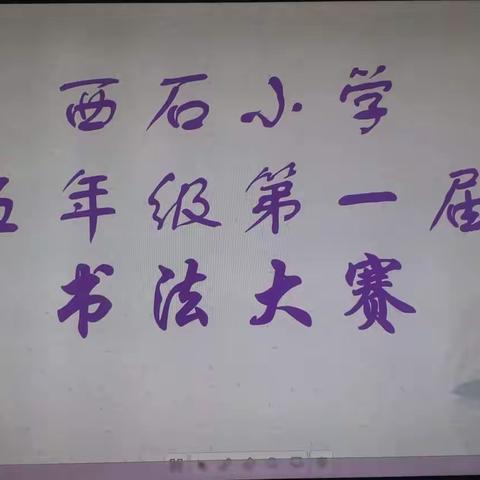 西石小学
五年级第一届
书法大赛